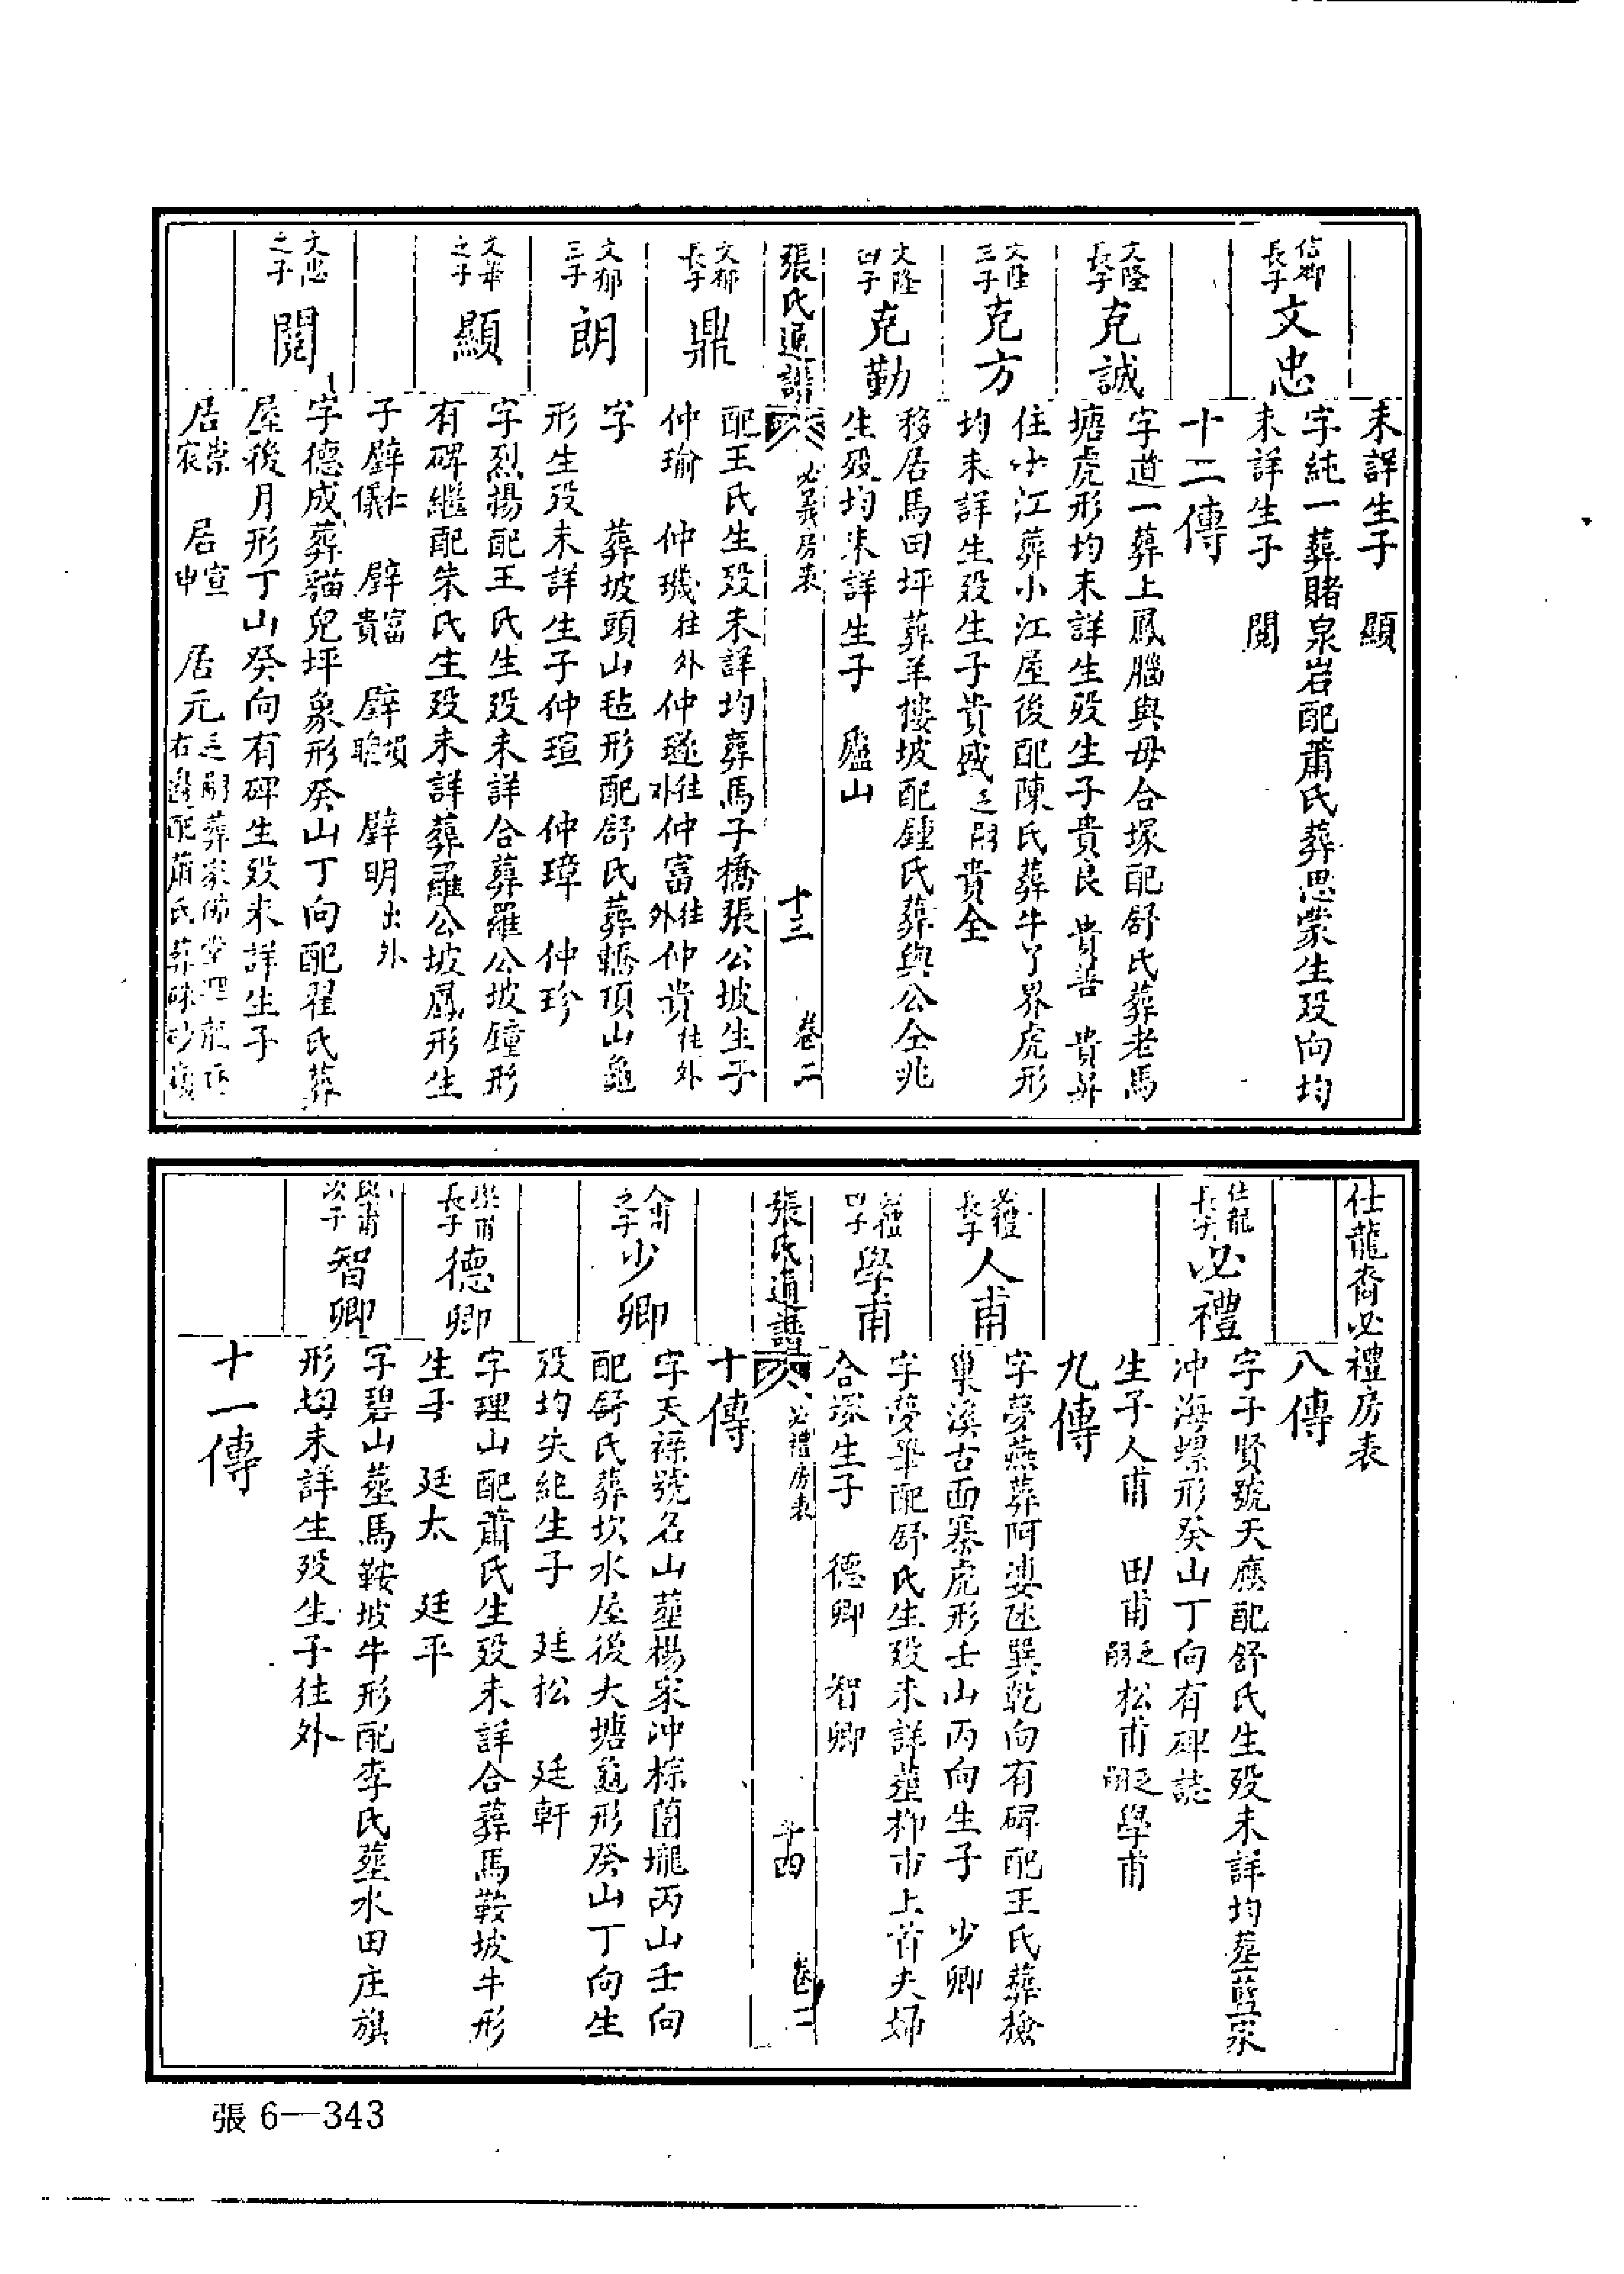 未詳生子　顯
信卿長子
文忠
字純一葬賭泉岩配蕭氏葬思蒙生殁向均
未詳生子　閱
十二傳
文隆長子
克誠
字道一葬上鳳腦與母合塚配舒氏葬老馬
塘虎形均未詳生殁生子貴良　貴善　貴昇
文隆三子
克方
住小江葬小江屋後配陳氏葬牛丫界虎形
均未詳生殁生子貴盛乏嗣貴全
文隆四子
克勤
移居馬田坪葬羊樓坡配鍾氏葬與公仝兆
生殁均未詳生子　廬山
張氏通譜　必義房表　十三　卷二
文郁長子
鼎
配王氏生殁未詳均葬馬子橋張公坡生子
仲瑜　仲璣往外仲璲往外仲富往外仲贵往外
文郁三子
朗
字　　葬坡頭山毡形配舒氏葬轎頂山龜
形生殁未詳生子仲瑄　仲璋　仲珍
文華之子
顯
字烈揚配王氏生殁未詳合葬羅公坡鐘形
有碑繼配朱氏生殁未詳葬羅公坡鳳形生
子壁仁儀　壁富貴　壁　壁明出外
文忠之子
閱
字德成葬貓兒坪象形癸山丁向配翟氏葬
屋後月形丁山癸向有碑生殁未詳生子
居崇　居宣申　居元乏嗣葬家佛堂　龍　右邊配蕭氏葬硃砂
仕龍裔必禮房表
八傳
仕龍長子
必禮
字子賢號天應配舒氏生殁未詳均葬藍家
冲海螺形癸山丁向有碑誌
生子人甫　田甫乏嗣松甫乏嗣學甫
九傳
必禮長子
人甫
字夢燕葬阿婆坵巽乾向有碑配王氏葬檢
巢溪古面寨虎形壬山丙向生子　少卿
必禮四子
學甫
字夢畢配舒氏生殁未詳葬柳市上首夫婦
合塚生子　德卿　智卿
張氏通譜　必禮房表　十四　卷二
十傳
人甫之子
少卿
字天祿號名山葬楊家冲棕園壠丙山壬向
配舒氏葬坎水屋後大塘龜形癸山丁向生
殁均失紀生子　廷松　廷軒
學甫長子
德卿
字理山配蕭氏生殁未詳合葬馬鞍坡牛形
生子　廷太　廷平
學甫次子
智卿
字碧山葬馬鞍坡牛形配李氏葬水田庄旗
形均未詳生殁生子往外
十一傳
張 6—343